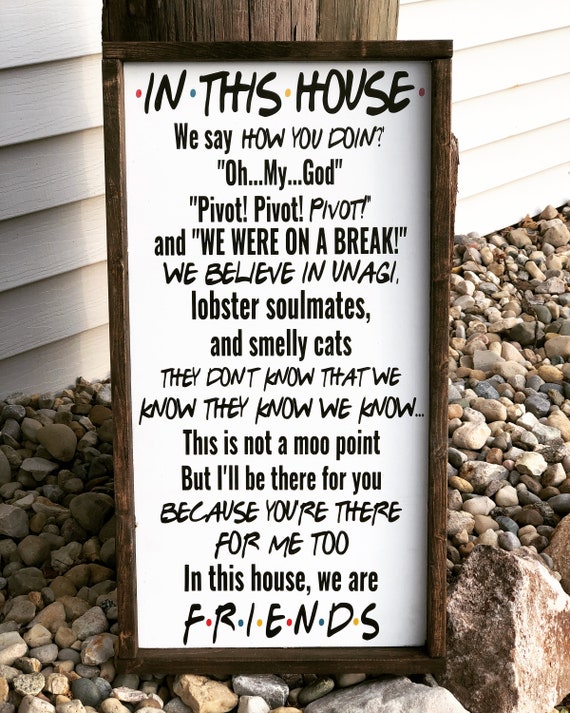 •IN•THIS•HOUSE•
We say HOW YOU DOIN?
"Oh...My...God"
"Pivot! Pivot! PIVOT!"
and "WE WERE ON A BREAK!"
WE BELIEVE IN UNAGI,
lobster soulmates,
and smelly cats
THEY DON'T KNOW THAT WE
KNOW THEY KNOW WE KNOW...
This is not a moo point
But I'll be there for you
BECAUSE YOU'RE THERE
FOR ME TOO
In this house, we are
F•R•I•E•N•D•S